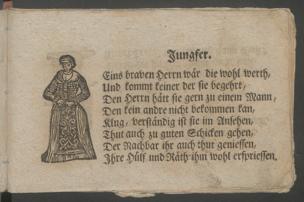 Jungfer.
Eins braven Herrn wär die wohl werth,
Und kommt keiner der sie begehrt,
Den Herrn hätt sie gern zu einem Mann,
Den kein andre nicht bekommen kan,
Klug, verständig ist sie im Ansehen,
Thut auch zu guten Schicken gehen,
Der Nachbar ihr auch thut geniessen,
Ihre Hülf und Räth ihm wohl erspriessen.